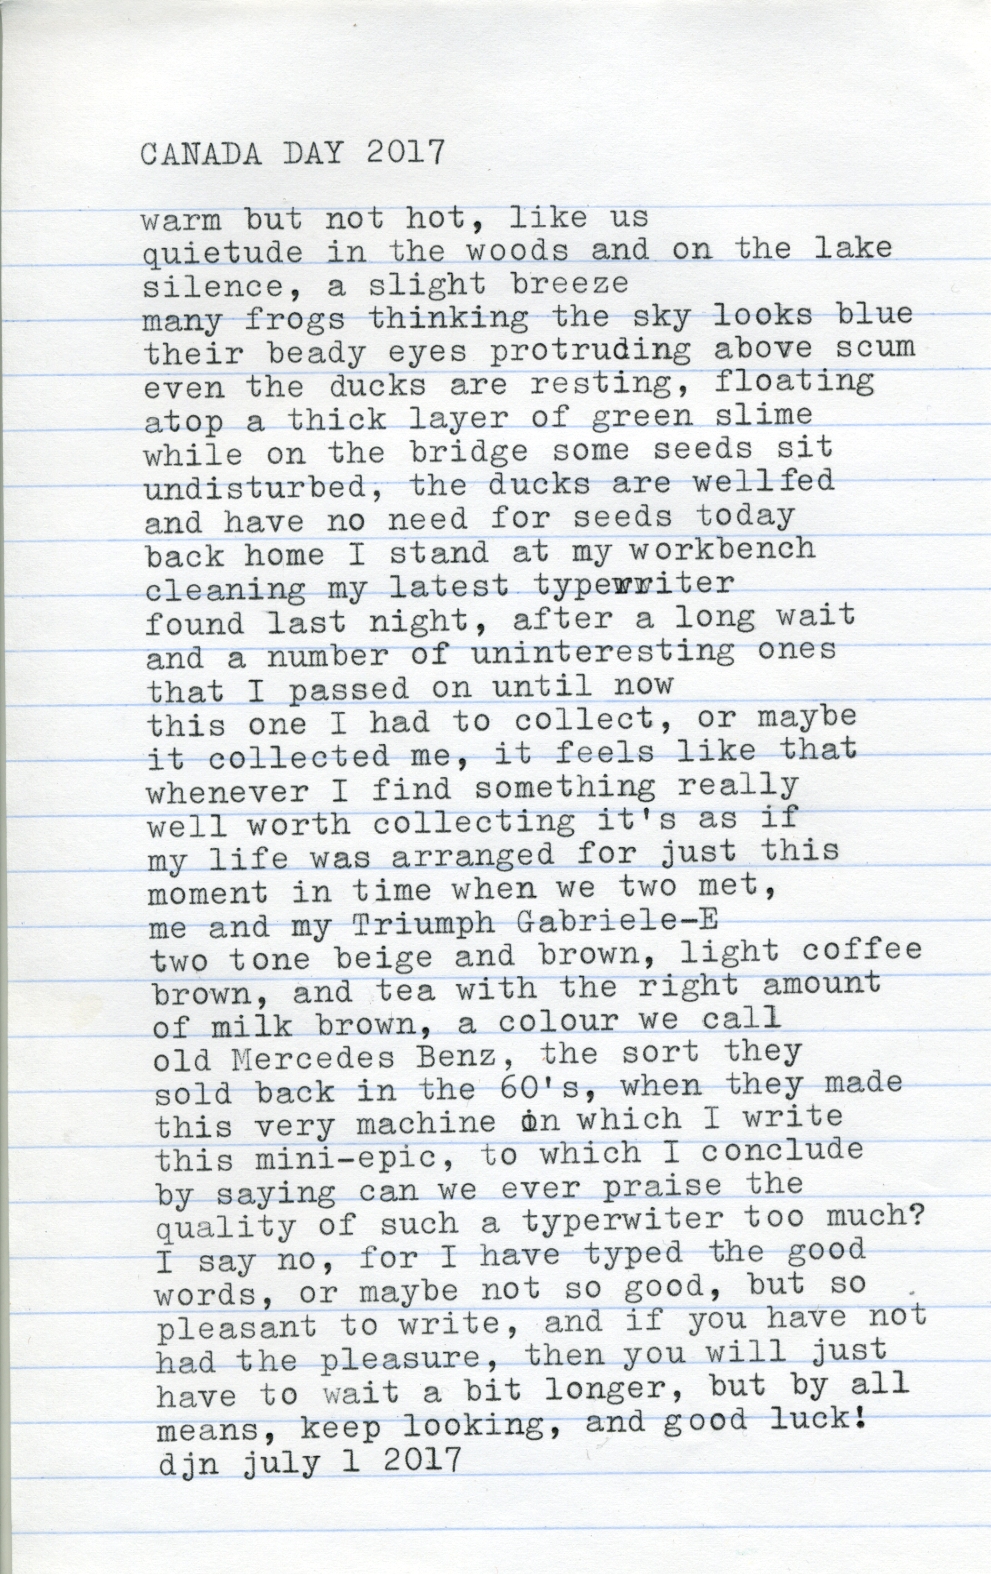 CANADA DAY 2017
warm but not hot, like us
quietude in the woods and on the lake
silence, a slight breeze
many frogs thinking the sky looks blue
their beady eyes protruding above scum
even the ducks are resting, floating
atop a thick layer of green slime
while on the bridge some seeds sit
undisturbed, the ducks are wellfed
and have no need for seeds today
back home I stand at my workbench
cleaning my latest typewriter
found last night, after a long wait
and a number of uninteresting ones
that I passed on until now
this one I had to collect, or maybe
it collected me, it feels like that
whenever I find something really
well worth collecting it's as if
my life was arranged for just this
moment in time when we two met,
me and my Triumph Gabriele-E
two tone beige and brown, light coffee
brown, and tea with the right amount
of milk brown, a colour we call
old Mercedes Benz, the sort they
sold back in the 60's, when they made
this very machine on which I write
this mini-epic, to which I conclude
by saying can we ever praise the
quality of such a typerwiter too much?
I say no, for I have typed the good
words, or maybe not so good, but so
pleasant to write, and if you have not
had the pleasure, then you will just
have to wait a bit longer, but by all
means, keep looking, and good luck!
djn july 1 2017